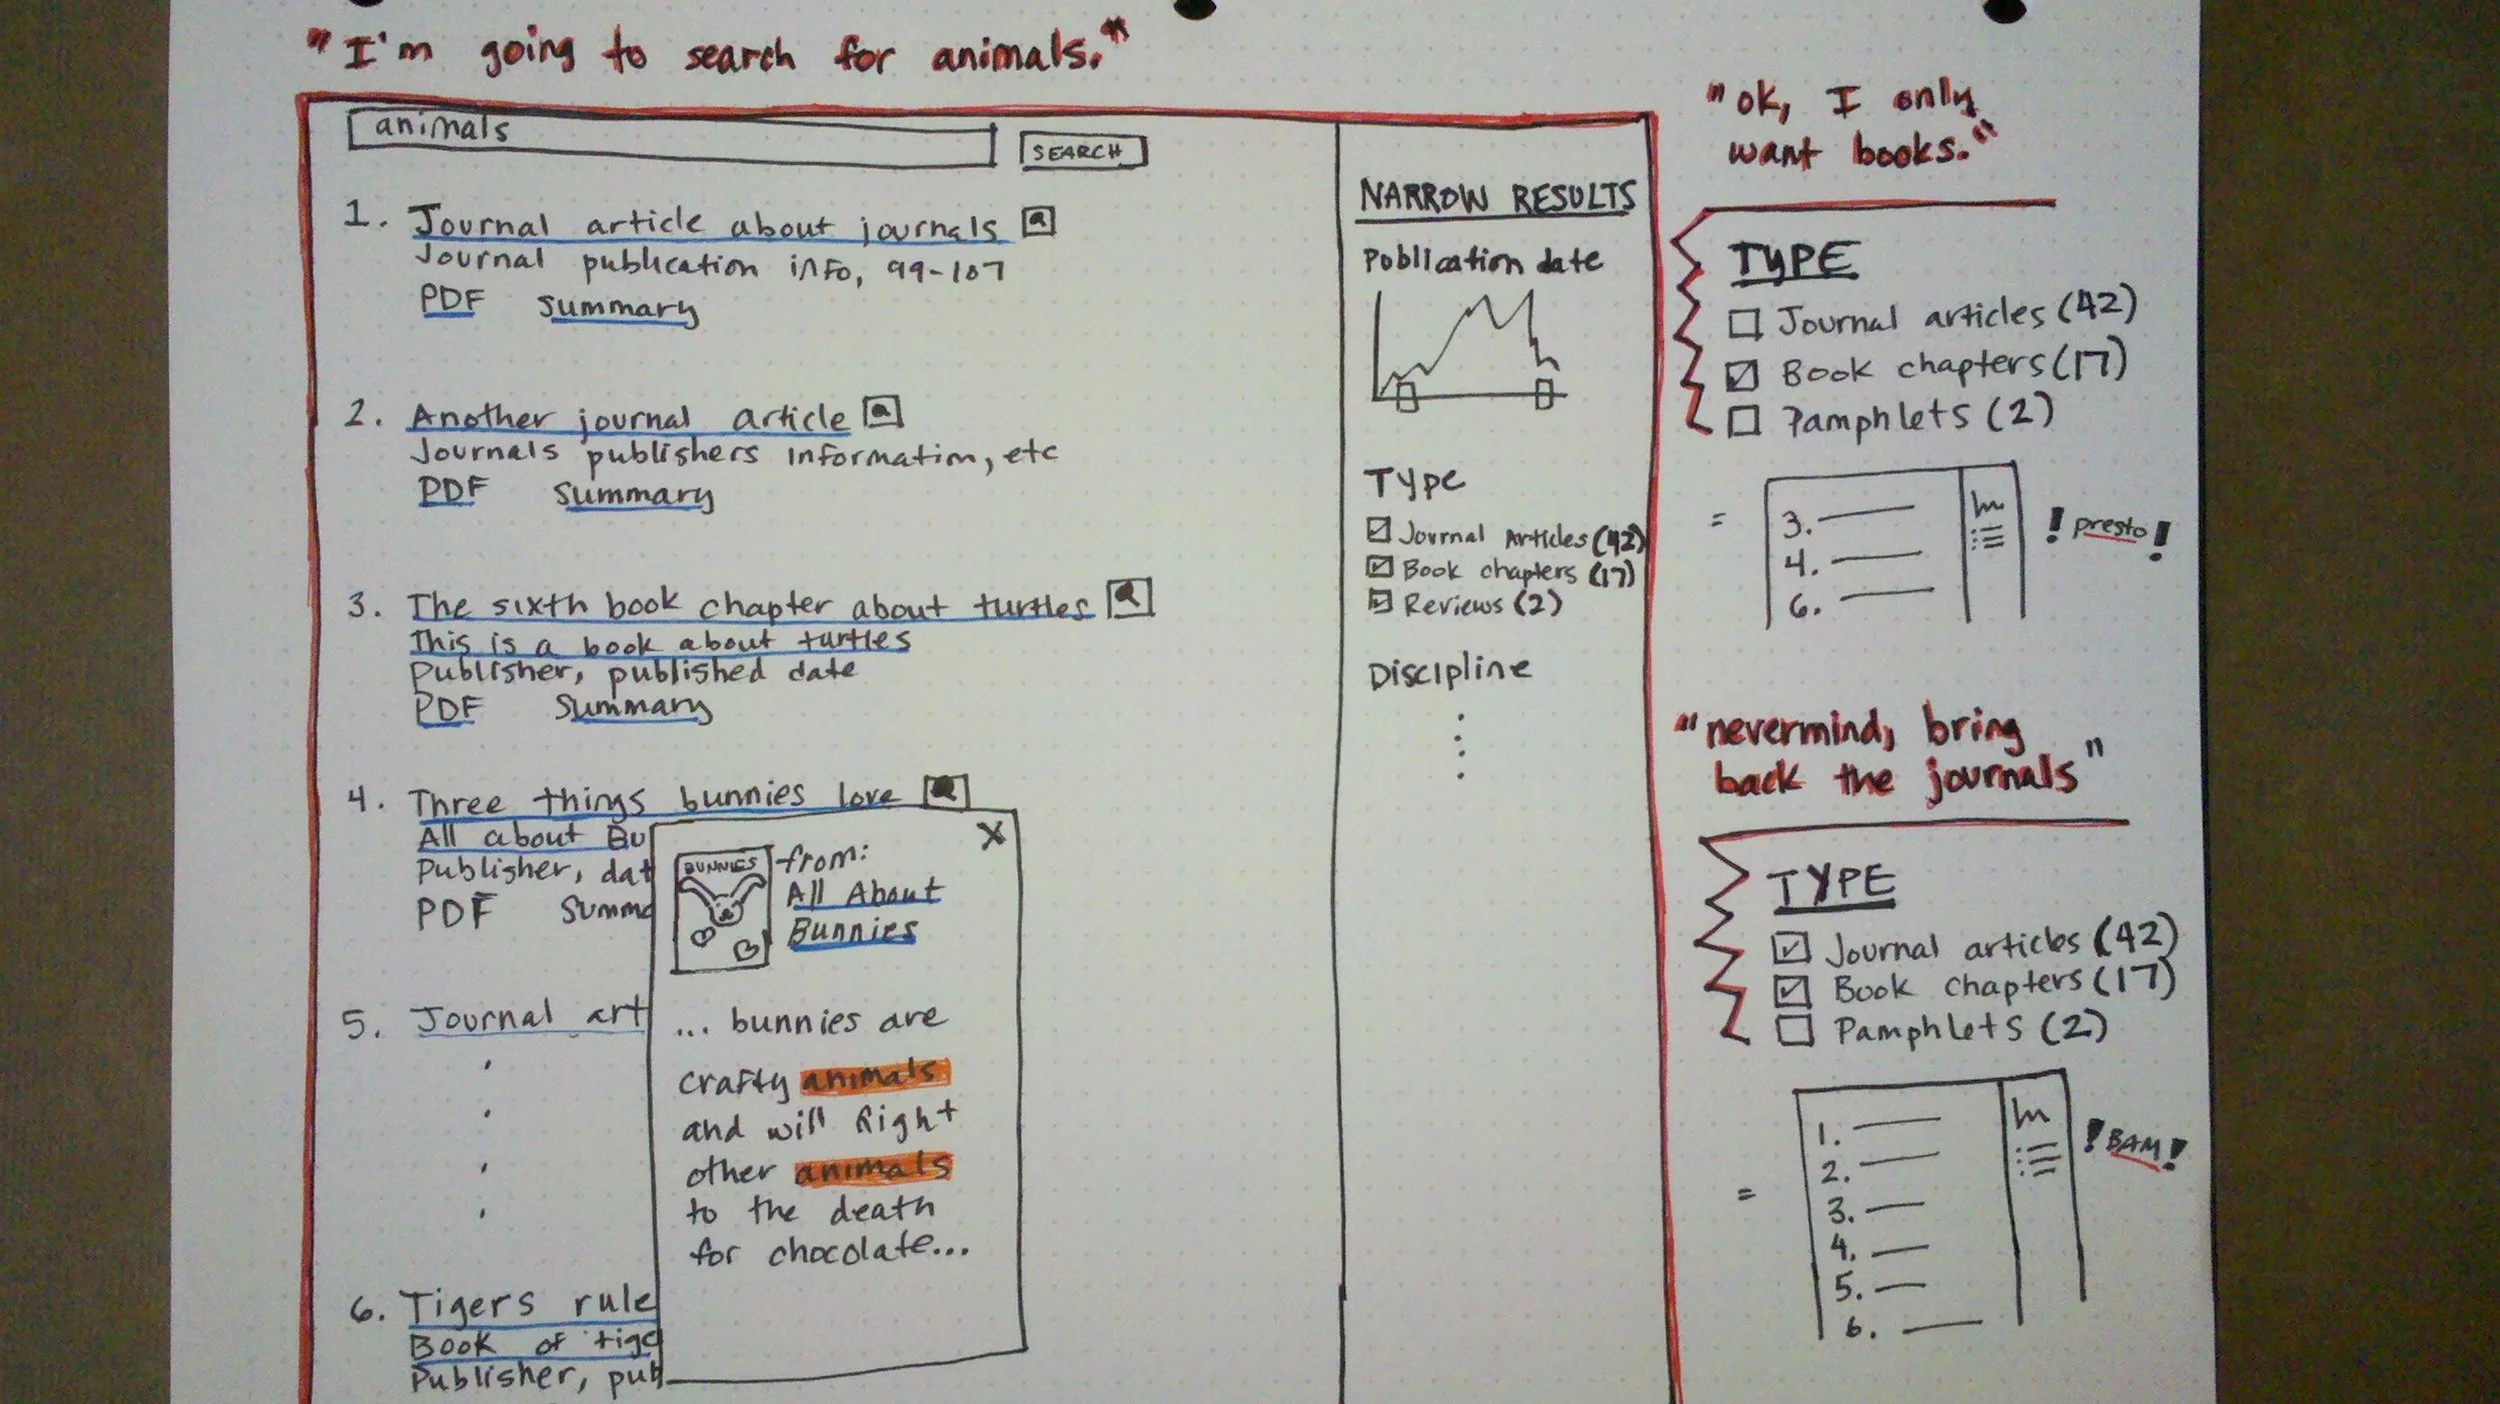 "I'm going to search for animals."
animals
SEARCH
1. Journal article about journals
Journal publication info, 99-107
PDF Summary
2. Another journal article
Journals publishers information, etc
PDF Summary
3. The sixth book chapter about turtles
This is a book about turtles
Publisher, published date
PDF Summary
4. Three things bunnies love
All about Bu
Publisher, dat
PDF Summa
5. Journal art
6. Tigers rule
Book of tige
Publisher, pub
X
BUNNIES
from:
All About
Bunnies
... bunnies are
crafty animals
and will fight
other animals
to the death
for chocolate...
NARROW RESULTS
Publication date
Type
Journal Articles (42)
Book chapters (17)
Reviews (2)
Discipline
"ok, I only
want books."
TYPE
Journal articles (42)
Book chapters (17)
Pamphlets (2)
=
3.
4.
6.
! presto !
"nevermind, bring
back the journals"
TYPE
Journal articles (42)
Book chapters (17)
Pamphlets (2)
=
1.
2.
3.
4.
5.
6.
! BAM !